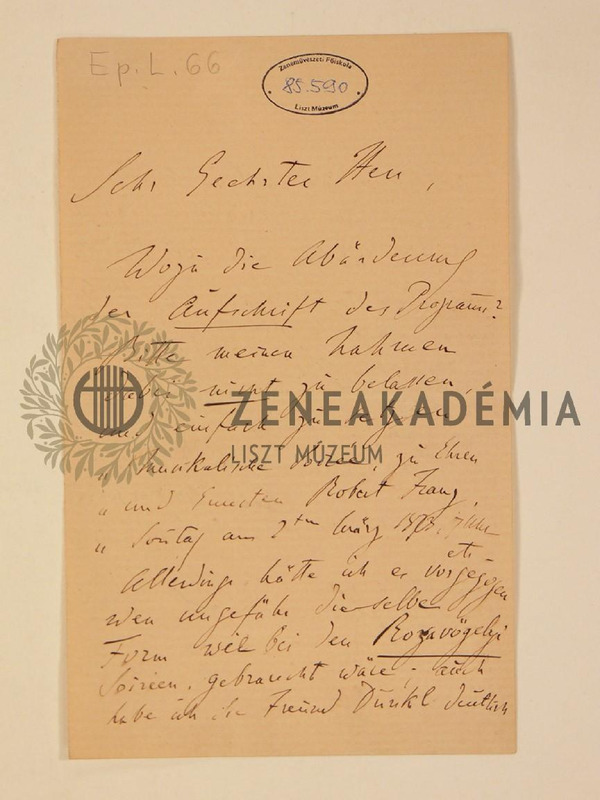 Ep. L. 66
Zeneművészeti Főiskola
85.590
Liszt Múzeum
Sehr Geehrter Herr,
Wozu die Abänderung
der Aufschrift des Programms?
Bitte meinen Nahmen
dabei nicht zu belassen,
und einfach zu setzen
„Musikalische Soirée, zu Ehren
„und Gunsten Robert Franz,
„Sonntag am 2ten März 1873,
etc.
Allerdings hätte ich es vorgezogen
wen ungefähr dieselbe
Form wie bei den Rozsavögelyi
Soiréen, gebraucht wäre; auch
habe ich Freund Dunkl deutlich
ZENEAKADÉMIA
LISZT MÚZEUM